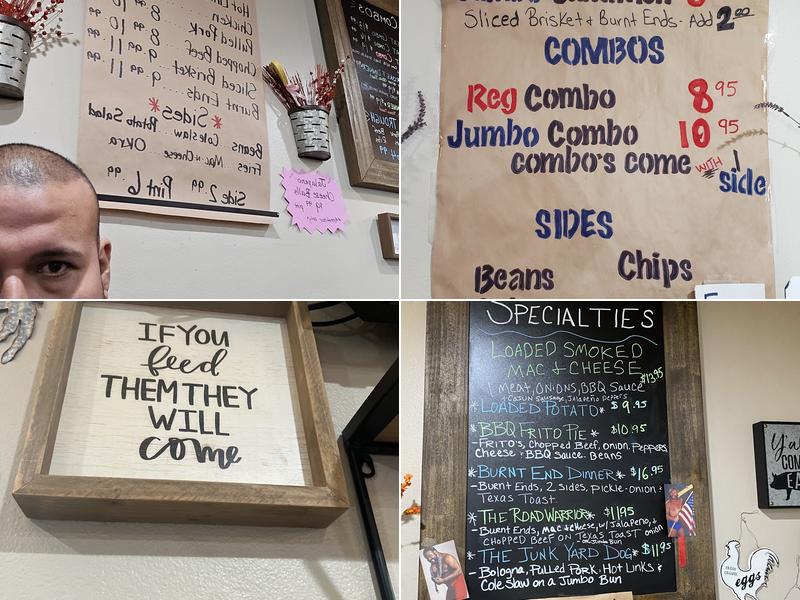 Hot Link
Chicken 8.99
Pulled Pork 8.99
Chopped Beef 10.99
Sliced Brisket 9.99 11.99
Burnt Ends 9.99 11.99
*Sides*
Cole Slaw Potato Salad
Beans Mac n Cheese Okra
Fries
Side 2.99 Pint 6.99
COMBOS
Jalapeno
Cheese Balls
Sliced Brisket + Burnt Ends - Add 2.00
COMBOS
Reg Combo 8 95
Jumbo Combo 10 95
combo's come WITH 1
side
SIDES
Beans Chips
IF YOU
feed
THEM THEY
WILL
come
SPECIALTIES
LOADED SMOKED
MAC & CHEESE
1 MEAT, ONIONS, BBQ SAUCE $13.95
+ CAJUN SAUSAGE, JALAPEÑO PEPPERS
*LOADED POTATO* $9.95
*BBQ FRITO PIE* $10.95
-FRITO'S, CHOPPED BEEF, ONION, PEPPERS
CHEESE, BBQ SAUCE. BEANS
*BURNT END DINNER* $16.95
-BURNT ENDS, 2 SIDES, PICKLE-ONION &
TEXAS TOAST
*THE ROAD WARRIOR* $11.95
-BURNT ENDS, MAC & CHEESE, W/ JALAPEÑO, &
CHOPPED BEEF ON TEXAS TOAST ONION
OR JUMBO BUN
*THE JUNK YARD DOG* $11.95
-BOLOGNA, PULLED PORK, HOT LINKS &
COLE SLAW ON A JUMBO BUN
Y'all
COM
EA
FARM
eggs